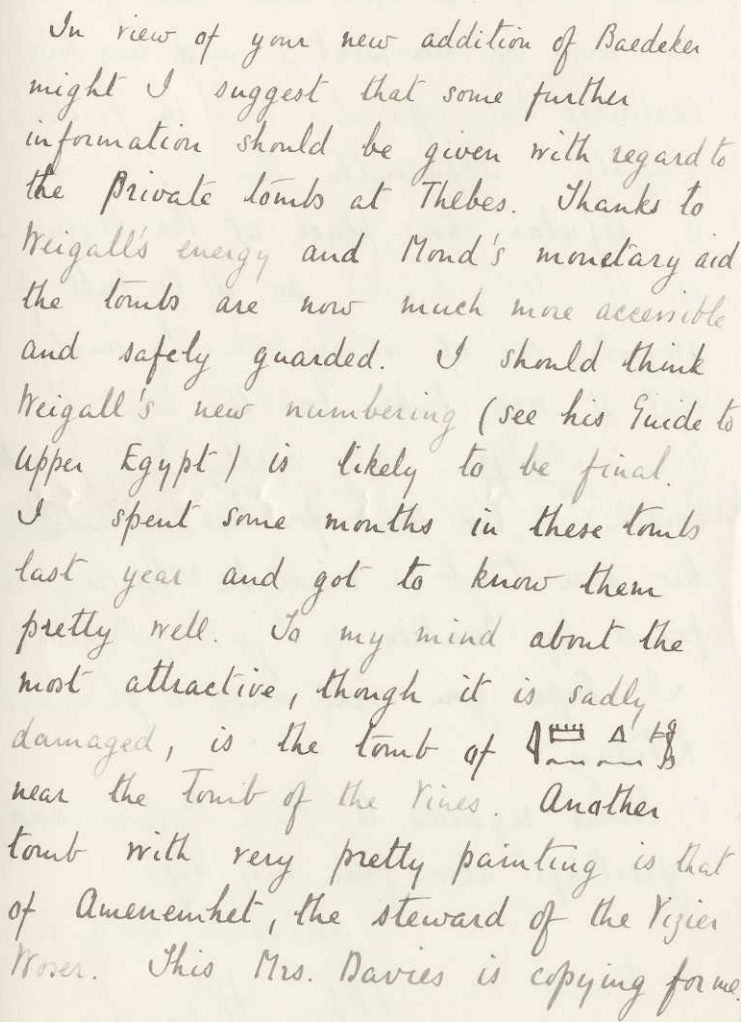 In view of your new addition of Baedeker
might I suggest that some further
information should be given with regard to
the Private tombs at Thebes. Thanks to
Weigall's energy and Mond's monetary aid
the tombs are now much more accessible
and safely guarded. I should think
Weigall's new numbering (see his Guide to
Upper Egypt) is likely to be final.
I spent some months in these tombs
last year and got to know them
pretty well. To my mind about the
most attractive, though it is sadly
damaged, is the tomb of
near the Tomb of the Vines. Another
tomb with very pretty painting is that
of Amenemhet, the steward of the Vizier
Woser. This Mrs. Davies is copying for me.